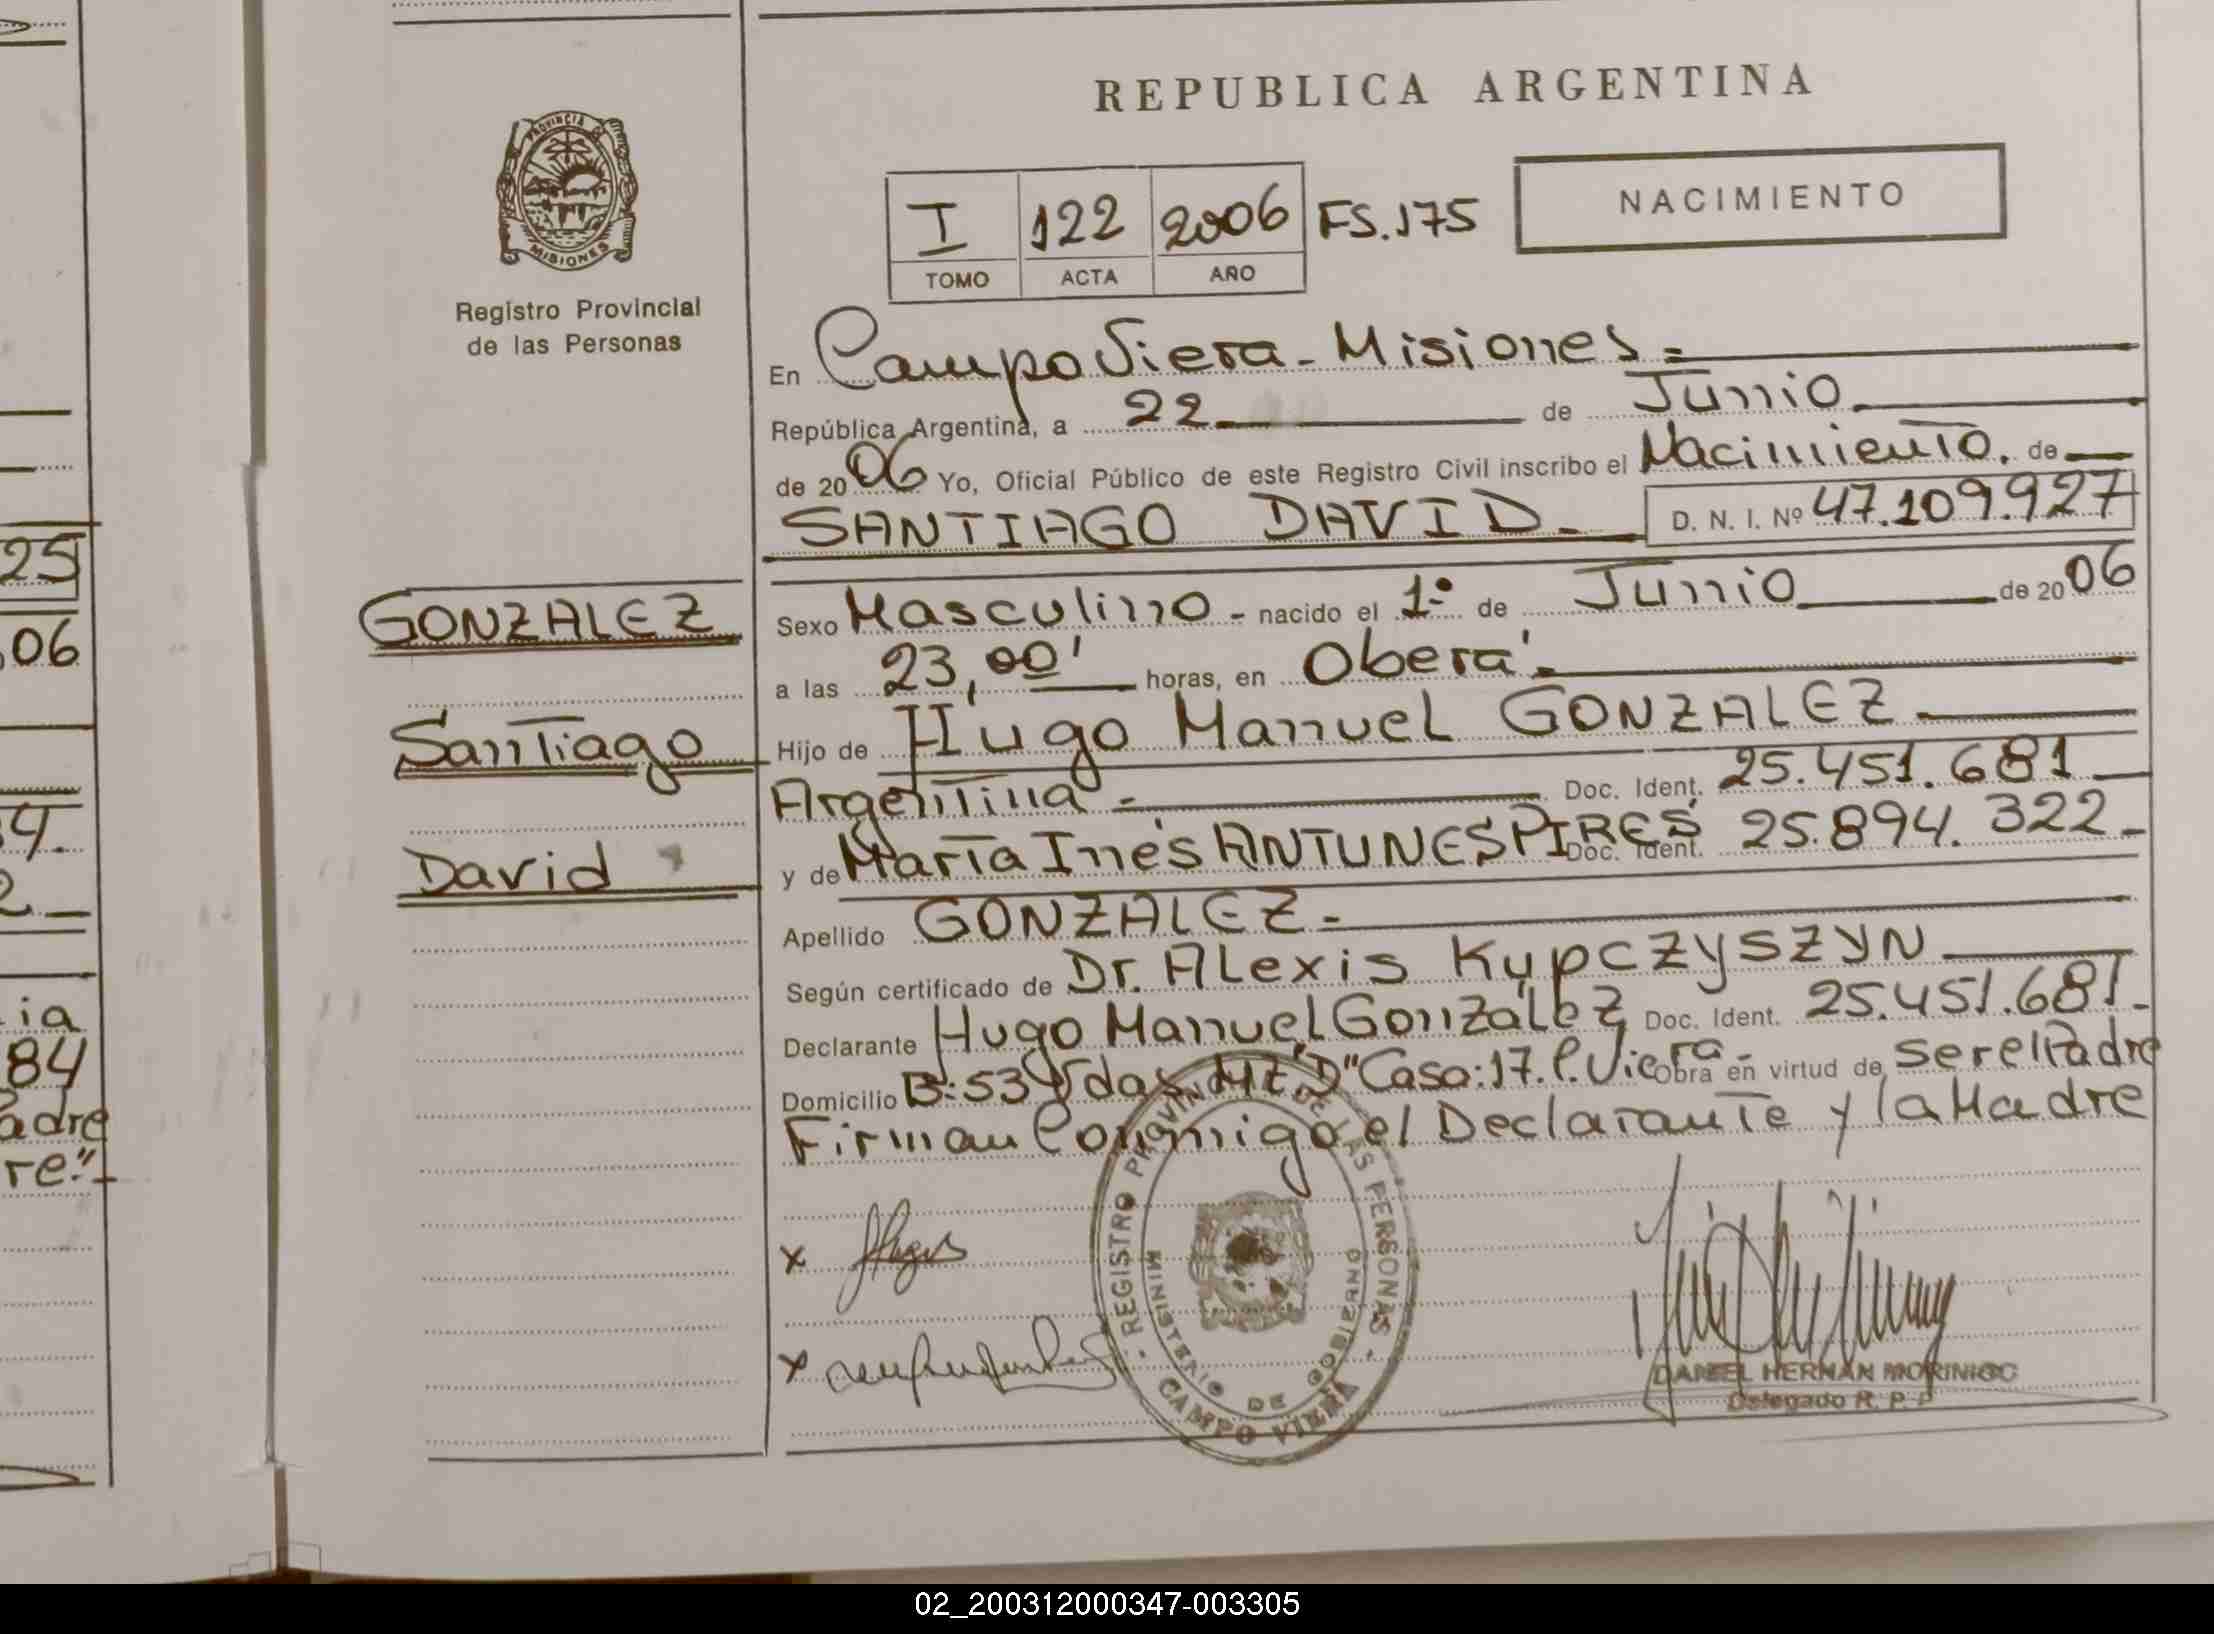 REPUBLICA ARGENTINA
PROVINCIA DE
MISIONES
Registro Provincial
de las Personas
NACIMIENTO
I 122 2006 FS.175
TOMO ACTA AÑO
En Campo Viera - Misiones =
República Argentina, a 22 de Junio
de 2006 Yo, Oficial Público de este Registro Civil inscribo el Nacimiento. de
SANTIAGO DAVID - D. N. I. Nº 47.109.927
GONZALEZ
Santiago
David
Sexo Masculino - nacido el 1º de Junio de 2006
a las 23,00' horas, en Oberá -
Hijo de Hugo Manuel GONZALEZ -
Argentina - Doc. Ident. 25.451.681
y de María Inés ANTUNES PIRES Doc. Ident. 25.894.322-
Apellido GONZALEZ -
Según certificado de Dr. Alexis Kypczyszyn
Declarante Hugo Manuel González Doc. Ident. 25.451.681.-
Domicilio B:53 Vdas MZ"D" Casa:17. C. Viera - obra en virtud de ser el Padre
Firman Conmigo el Declarante y la Madre
x
x
REGISTRO PROVINCIAL DE LAS PERSONAS
MINISTERIO DE GOBIERNO
CAMPO VIERA
DANIEL HERNAN MORINIGO
Delegado R. P. P
25
06
4.
2
ia
84
adre
re"-
02_200312000347-003305